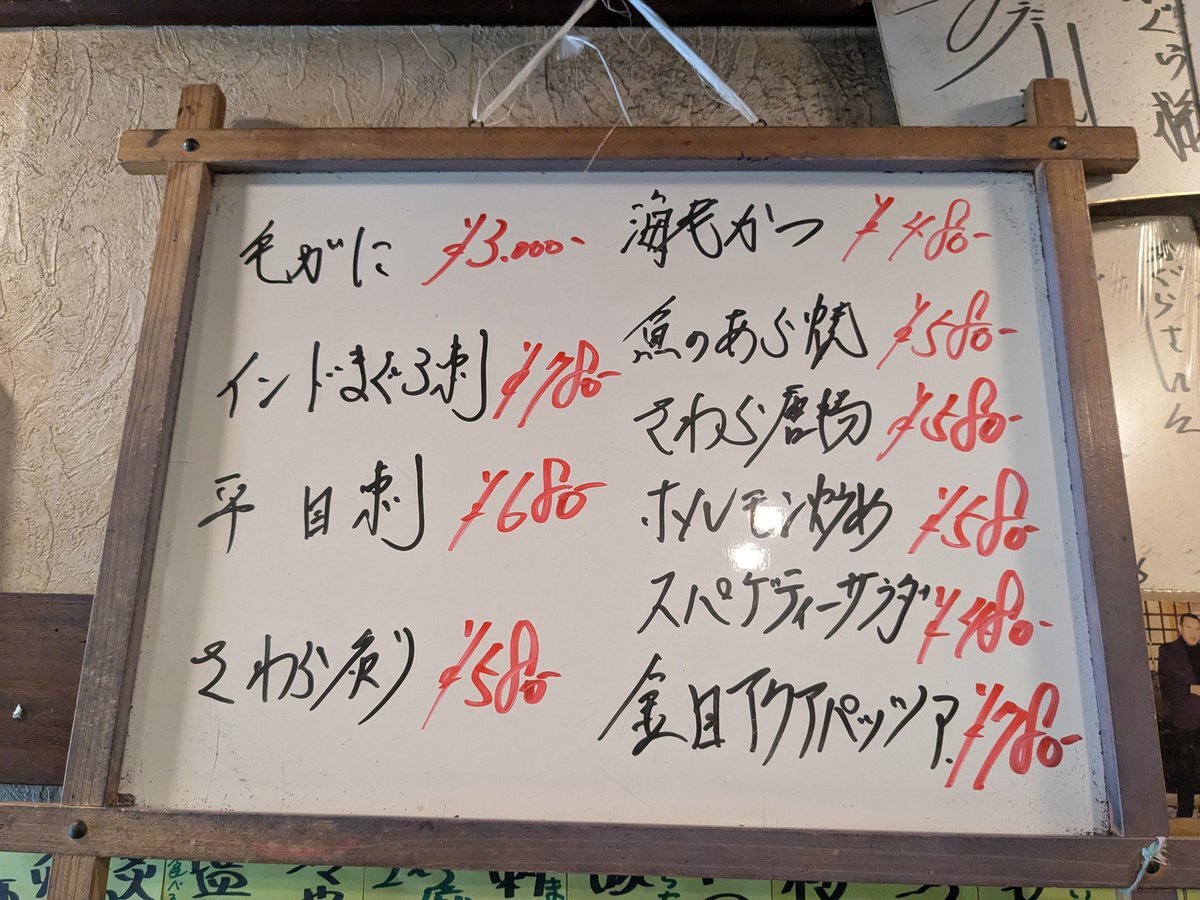 毛がに ¥3.000-
インドまぐろ刺 ¥780-
平目刺 ¥680-
さわら炙り ¥580-
海老かつ ¥480-
魚のあら焼 ¥580-
さわら唐揚 ¥580-
ホルモン炒め ¥580-
スパゲティーサラダ ¥480-
金目アクアパッツァ ¥780-
ぐらさんえ